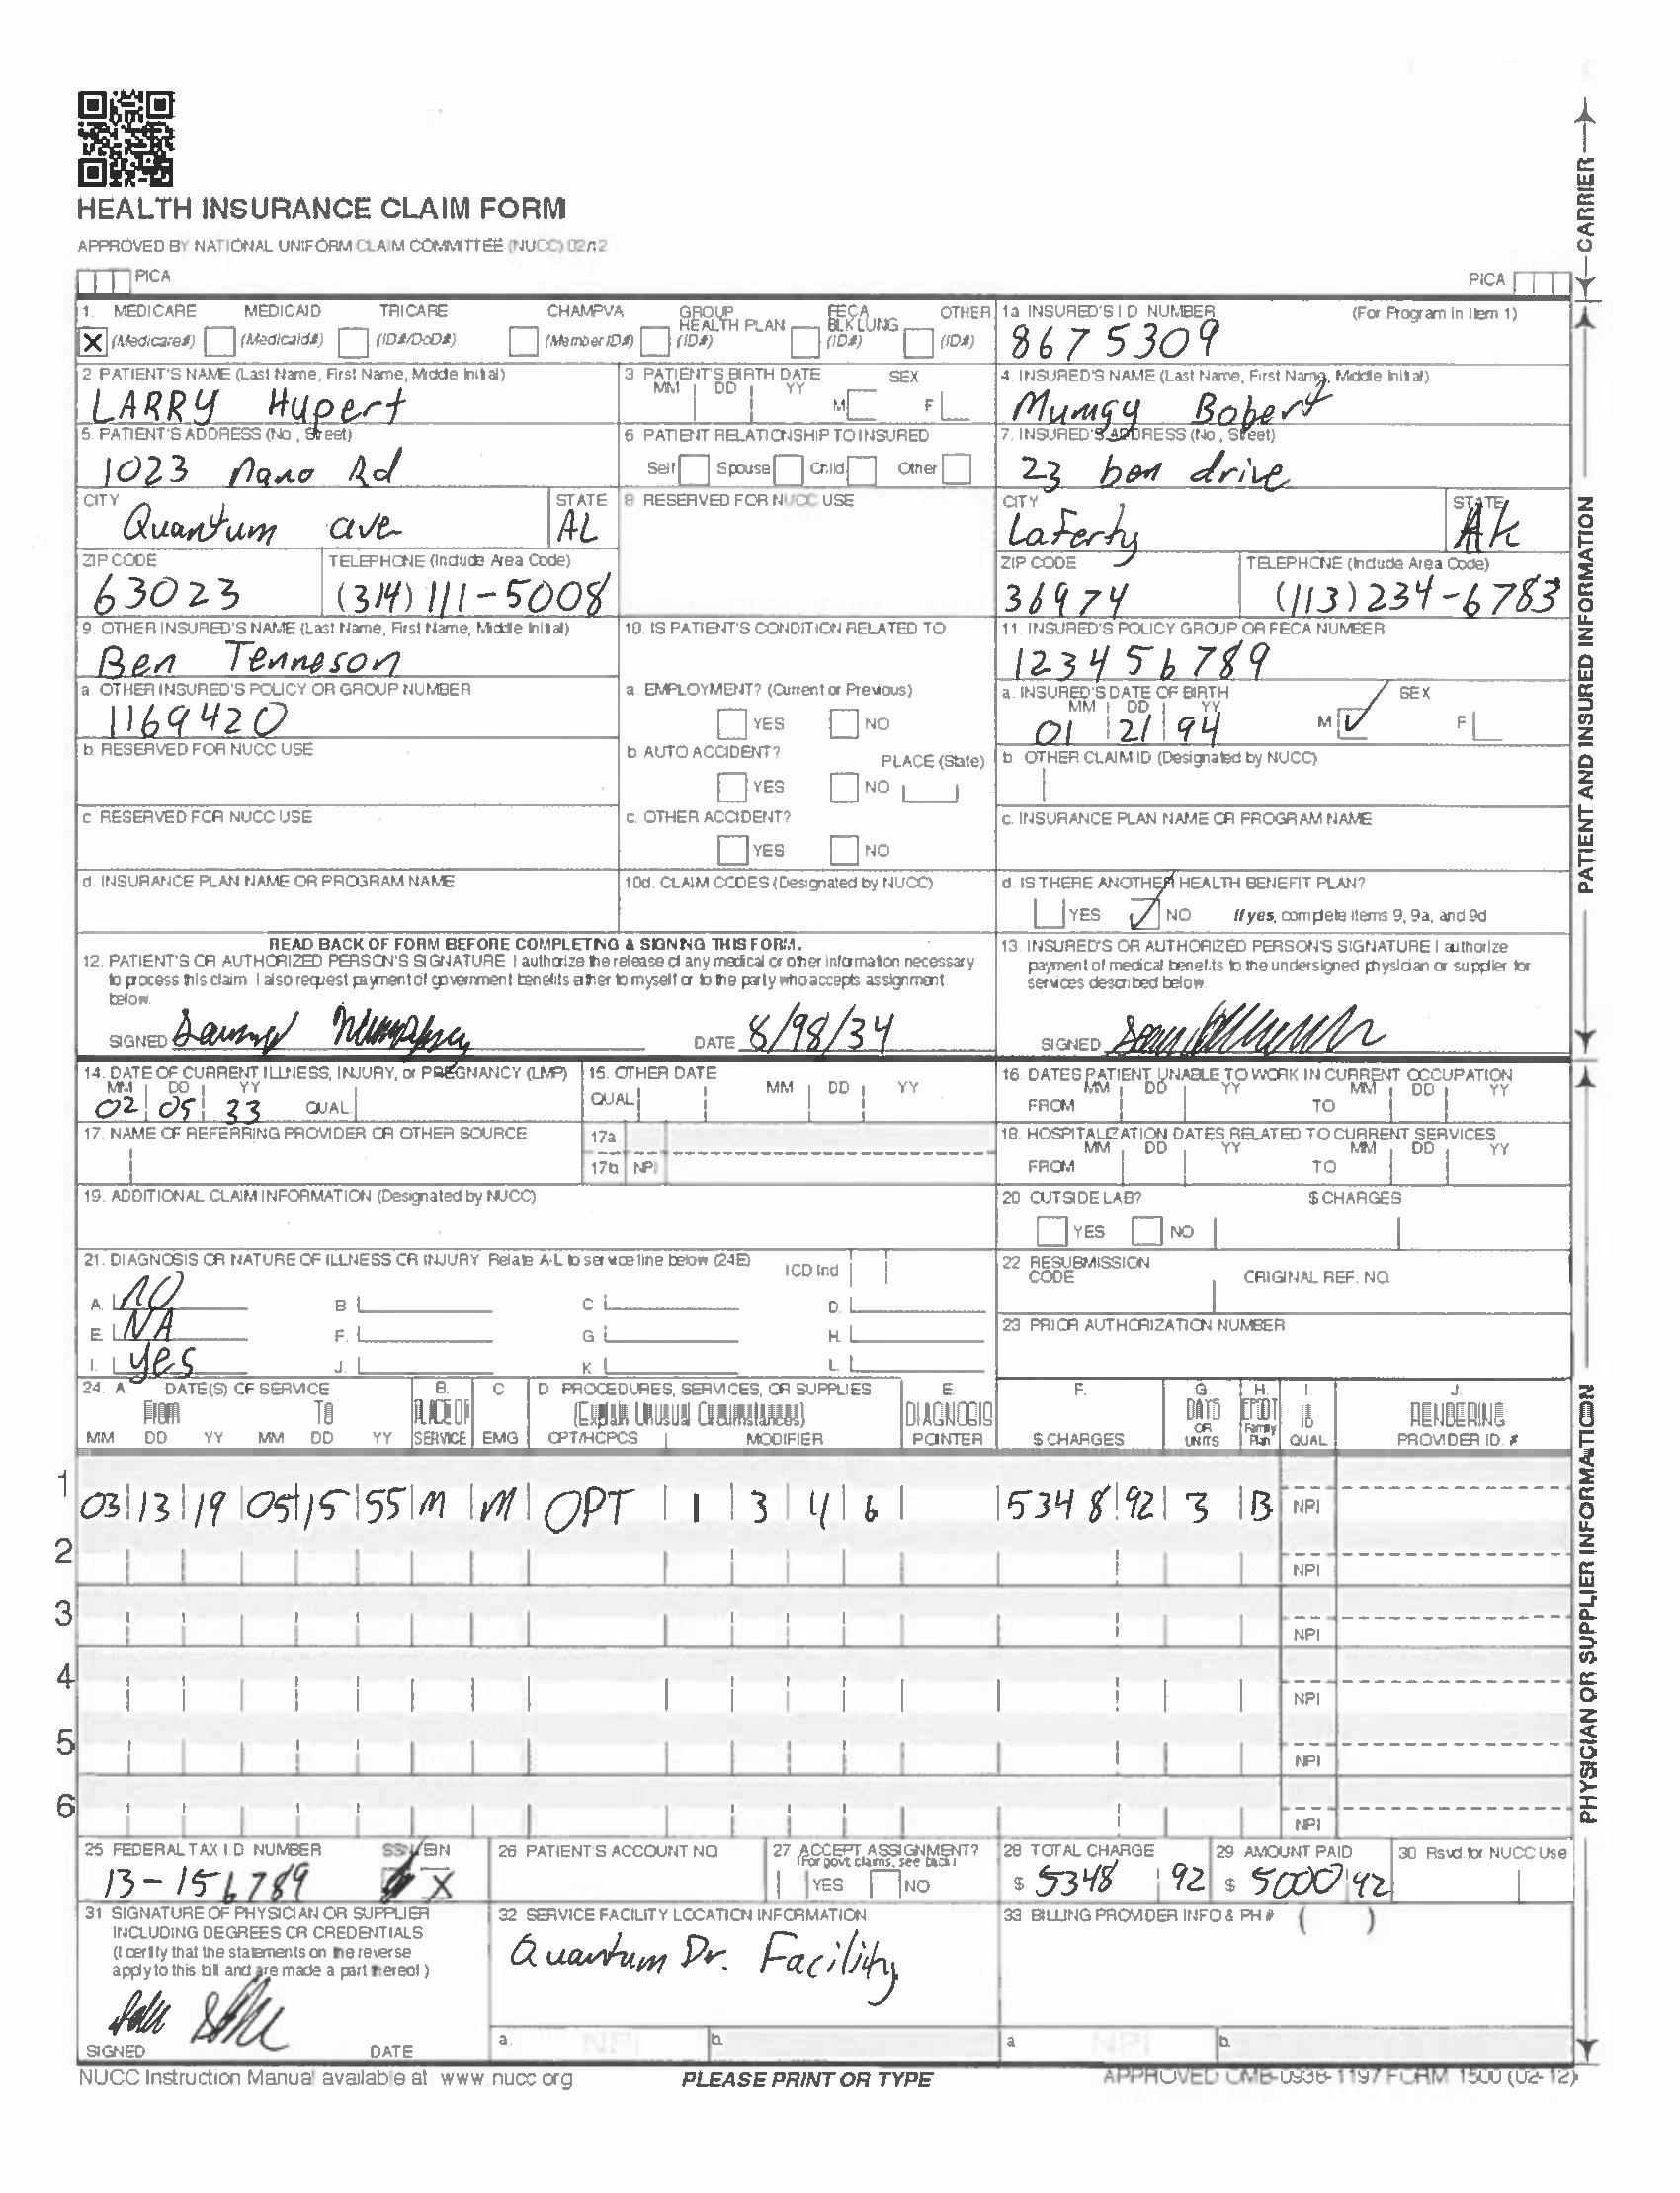 HEALTH INSURANCE CLAIM FORM
APPROVED BY NATIONAL UNIFORM CLAIM COMMITTEE (NUCC) 02/12
PICA
PICA
CARRIER
1. MEDICARE MEDICAID TRICARE CHAMPVA GROUP HEALTH PLAN FECA BLK LUNG OTHER
X (Medicare#) (Medicaid#) (ID#/DoD#) (Member ID#) (ID#) (ID#) (ID#)
1a INSURED'S I D NUMBER (For Program in Item 1)
8675309
2 PATIENT'S NAME (Last Name, First Name, Middle Initial)
LARRY Hupert
3 PATIENT'S BIRTH DATE SEX
MM DD YY M F
4. INSURED'S NAME (Last Name, First Name, Middle Initial)
Mumgy Bobert
5. PATIENT'S ADDRESS (No , Street)
1023 Nano Rd
6 PATIENT RELATIONSHIP TO INSURED
Self Spouse Child Other
7. INSURED'S ADDRESS (No , Street)
23 ben drive
CITY STATE
Quantum ave AL
8 RESERVED FOR NUCC USE
CITY STATE
Laferty AK
ZIP CODE TELEPHONE (Include Area Code)
63023 (314) 111-5008
ZIP CODE TELEPHONE (Include Area Code)
36974 (113) 234-6783
9. OTHER INSURED'S NAME (Last Name, First Name, Middle Initial)
Ben Tenneson
10. IS PATIENT'S CONDITION RELATED TO
11. INSURED'S POLICY GROUP OR FECA NUMBER
123456789
a. OTHER INSURED'S POLICY OR GROUP NUMBER
1169420
a. EMPLOYMENT? (Current or Previous)
YES NO
a. INSURED'S DATE OF BIRTH SEX
MM DD YY
01 21 94 M F
b. RESERVED FOR NUCC USE
b AUTO ACCIDENT? PLACE (State)
YES NO
b. OTHER CLAIM ID (Designated by NUCC)
c RESERVED FOR NUCC USE
c. OTHER ACCIDENT?
YES NO
c. INSURANCE PLAN NAME OR PROGRAM NAME
d. INSURANCE PLAN NAME OR PROGRAM NAME
10d. CLAIM CODES (Designated by NUCC)
d. IS THERE ANOTHER HEALTH BENEFIT PLAN?
YES NO If yes, complete items 9, 9a, and 9d
PATIENT AND INSURED INFORMATION
READ BACK OF FORM BEFORE COMPLETING & SIGNING THIS FORM.
12. PATIENT'S OR AUTHORIZED PERSON'S SIGNATURE I authorize the release of any medical or other information necessary
to process this claim I also request payment of government benefits either to myself or to the party who accepts assignment
below.
SIGNED DATE 8/98/34
13. INSURED'S OR AUTHORIZED PERSON'S SIGNATURE I authorize
payment of medical benefits to the undersigned physician or supplier for
services described below.
SIGNED
14. DATE OF CURRENT ILLNESS, INJURY, or PREGNANCY (LMP)
MM DD YY
02 05 33 QUAL
15. OTHER DATE
QUAL MM DD YY
16. DATES PATIENT UNABLE TO WORK IN CURRENT OCCUPATION
MM DD YY MM DD YY
FROM TO
17. NAME OF REFERRING PROVIDER OR OTHER SOURCE
17a.
17b NPI
18. HOSPITALIZATION DATES RELATED TO CURRENT SERVICES
MM DD YY MM DD YY
FROM TO
19. ADDITIONAL CLAIM INFORMATION (Designated by NUCC)
20 OUTSIDE LAB? $ CHARGES
YES NO
21. DIAGNOSIS OR NATURE OF ILLNESS OR INJURY Relate A-L to service line below (24E) ICD Ind
A. NO B. C. D.
E. NA F. G. H.
I. yes J. K. L.
22 RESUBMISSION
CODE ORIGINAL REF. NO.
23 PRIOR AUTHORIZATION NUMBER
24. A. DATE(S) OF SERVICE B. C D PROCEDURES, SERVICES, OR SUPPLIES E. F. G. H. I. J.
FROM TO PLACE OF (Explain Unusual Circumstances) DIAGNOSIS DAYS OR EPSDT Family ID RENDERING
MM DD YY MM DD YY SERVICE EMG CPT/HCPCS MODIFIER POINTER $ CHARGES UNITS Plan QUAL PROVIDER ID. #
1 03 13 19 05 15 55 M M OPT 1 3 4 6 5348 92 3 B NPI
2 NPI
3 NPI
4 NPI
5 NPI
6 NPI
25 FEDERAL TAX I.D NUMBER SSN EIN
13-156789 X
26 PATIENT'S ACCOUNT NO
27 ACCEPT ASSIGNMENT?
(For govt claims, see back)
YES NO
28 TOTAL CHARGE
$ 5348 92
29 AMOUNT PAID
$ 5000 42
30 Rsvd for NUCC Use
31 SIGNATURE OF PHYSICIAN OR SUPPLIER
INCLUDING DEGREES OR CREDENTIALS
(I certify that the statements on the reverse
apply to this bill and are made a part thereof )
SIGNED DATE
32 SERVICE FACILITY LOCATION INFORMATION
Quantum Dr. Facility
a. NPI b.
33 BILLING PROVIDER INFO & PH # ( )
a NPI b.
PHYSICIAN OR SUPPLIER INFORMATION
NUCC Instruction Manual available at www nucc org
PLEASE PRINT OR TYPE
APPROVED OMB-0938-1197 FORM 1500 (02-12)